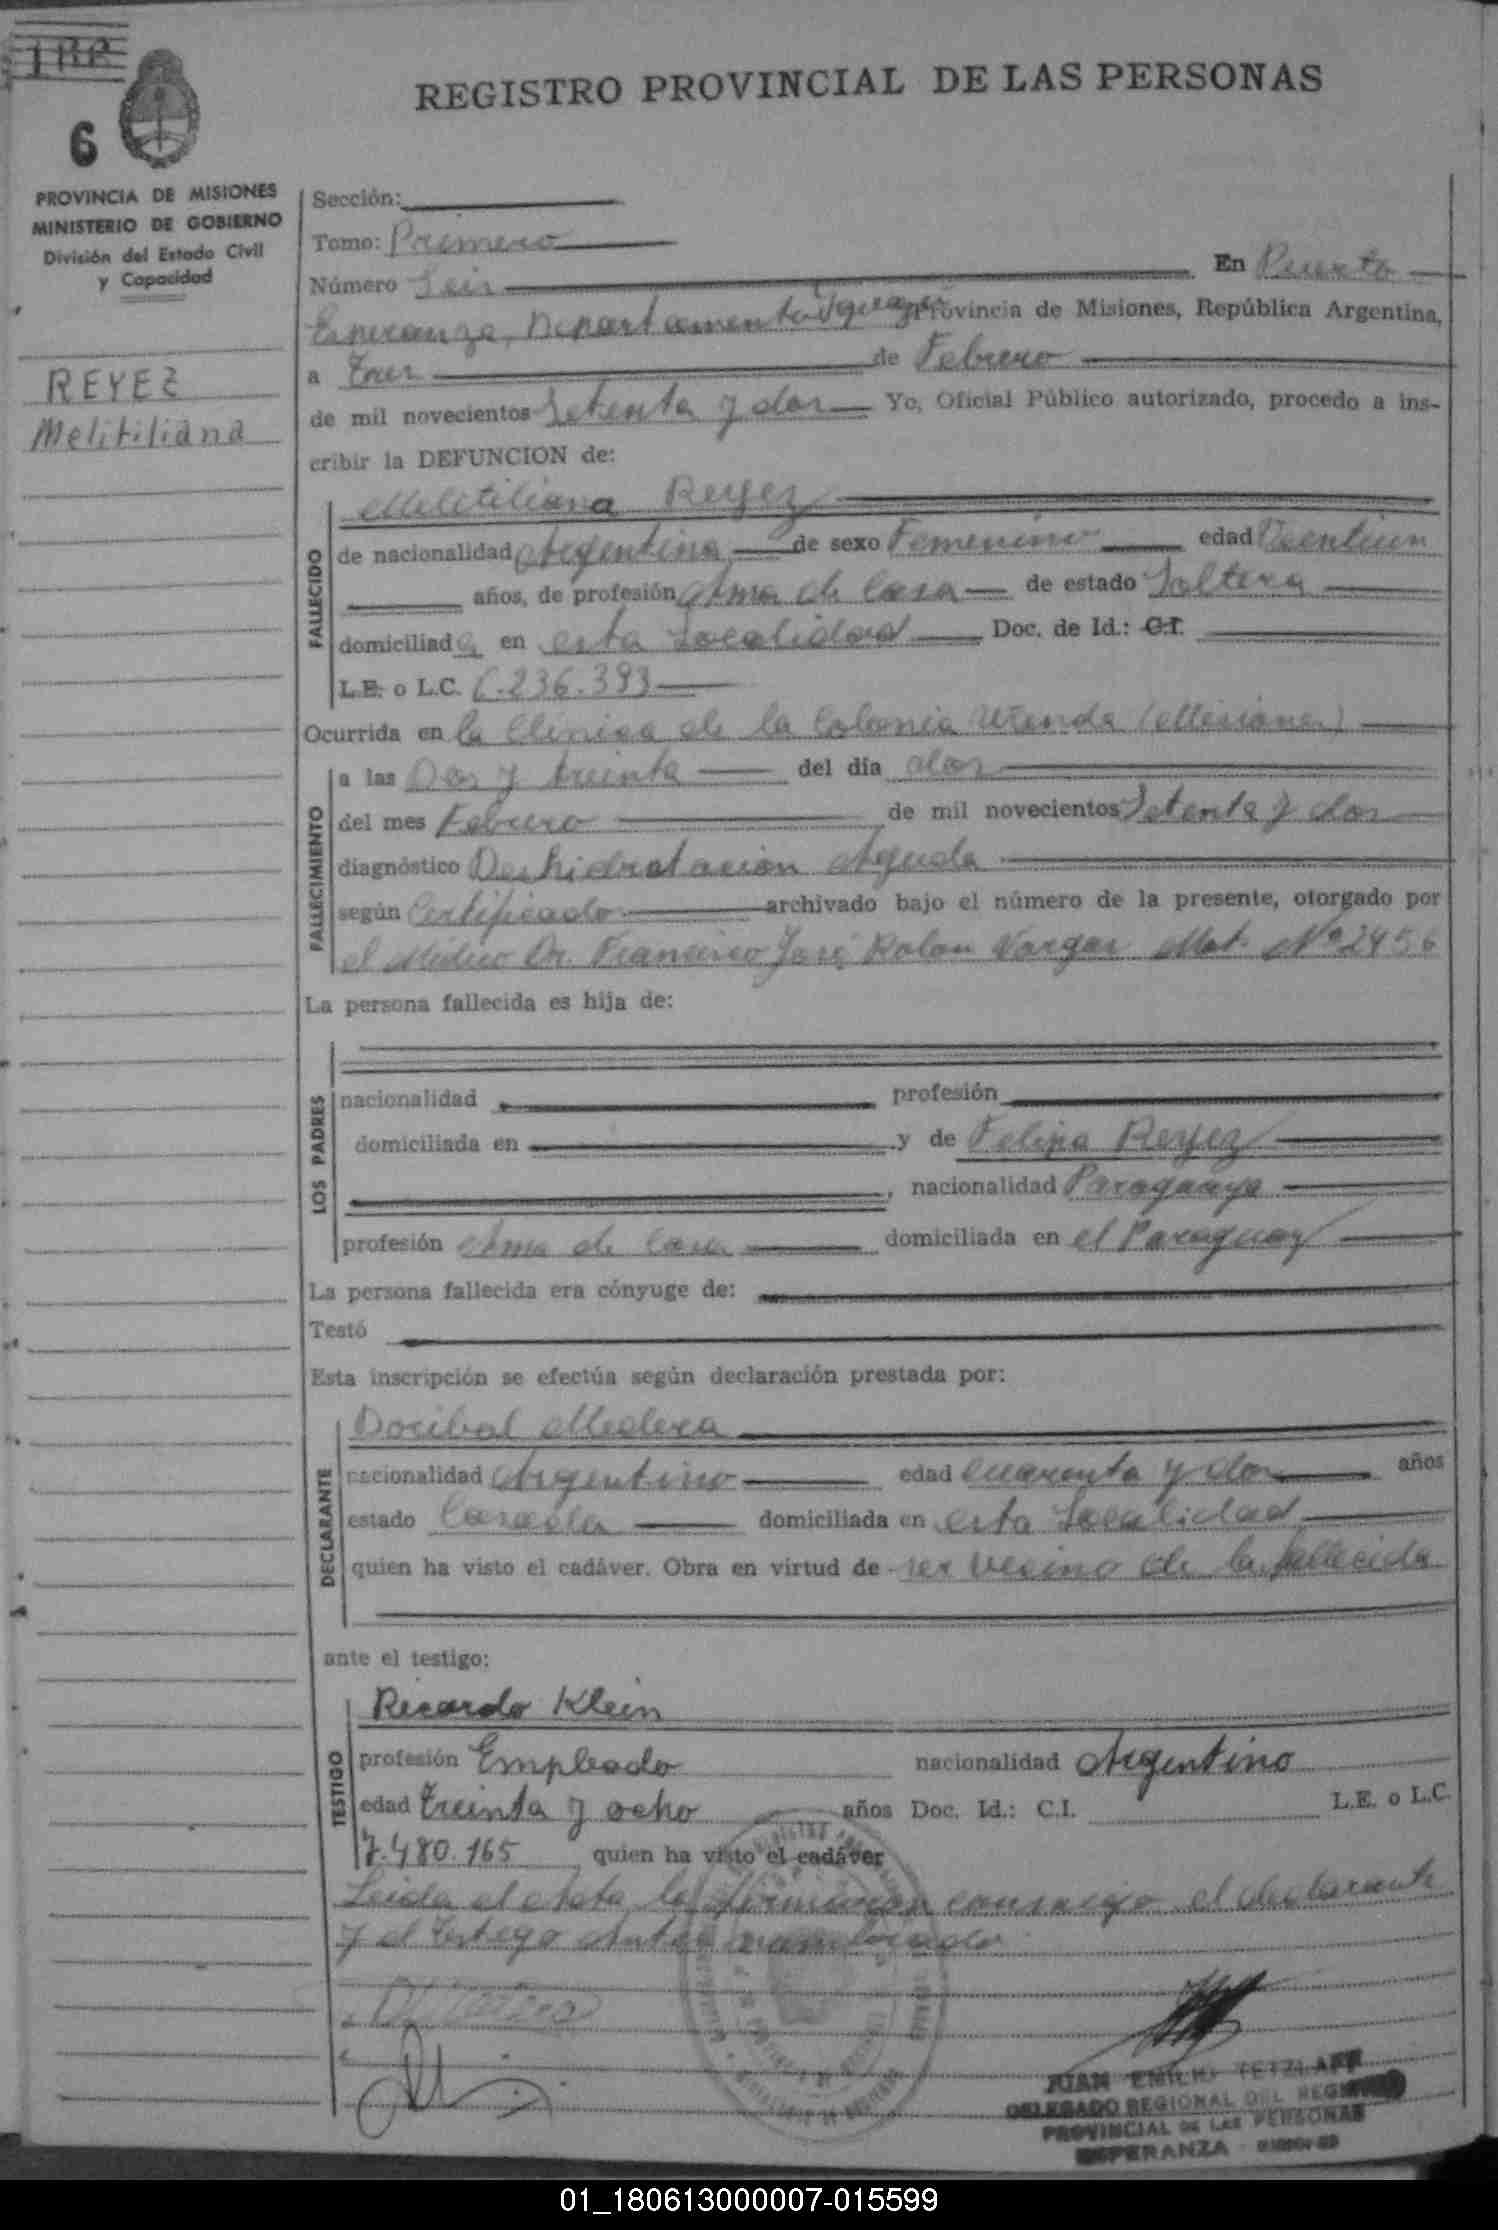 REGISTRO PROVINCIAL DE LAS PERSONAS
6
PROVINCIA DE MISIONES
MINISTERIO DE GOBIERNO
División del Estado Civil
y Capacidad
REYEZ
Melitiliana
Sección:
Tomo: Primero
Número Seis En Puerto
Esperanza, Departamento Iguazú Provincia de Misiones, República Argentina,
a Tres de Febrero
de mil novecientos Setenta y dos Yo, Oficial Público autorizado, procedo a ins-
cribir la DEFUNCION de:
FALLECIDO
Melitiliana Reyez
de nacionalidad Argentina de sexo Femenino edad Veentiun
años, de profesión Ama de Casa de estado Soltera
domiciliada en esta Localidad Doc. de Id.: C.I.
L.E. o L.C. 6.236.393
Ocurrida en la Clinica de la Colonia Wanda (Misiones)
FALLECIMIENTO
a las Dos y treinta del día dos
del mes Febrero de mil novecientos Setenta y dos
diagnóstico Deshidratacion Aguda
según Certificado archivado bajo el número de la presente, otorgado por
el Médico Dr. Francisco José Rolon Vargas Mat. Nº 2456
La persona fallecida es hija de:
LOS PADRES
nacionalidad profesión
domiciliada en y de Felipa Reyez
, nacionalidad Paraguaya
profesión Ama de Casa domiciliada en el Paraguay
La persona fallecida era cónyuge de:
Testó
Esta inscripción se efectúa según declaración prestada por:
DECLARANTE
Doribal Medera
nacionalidad Argentino edad cuarenta y dos años
estado Casado domiciliada en esta Localidad
quien ha visto el cadáver. Obra en virtud de ser vecino de la fallecida
ante el testigo:
TESTIGO
Ricardo Klein
profesión Empleado nacionalidad Argentino
edad Treinta y ocho años Doc. Id.: C.I. L.E. o L.C.
7.480.165 quien ha visto el cadáver
Leida el Acta la firmaran conmigo el declarante
y el testigo Antes nombrado
JUAN EMILIO TETZLAFF
DELEGADO REGIONAL DEL REGISTRO
PROVINCIAL DE LAS PERSONAS
ESPERANZA - MISIONES
01_180613000007-015599